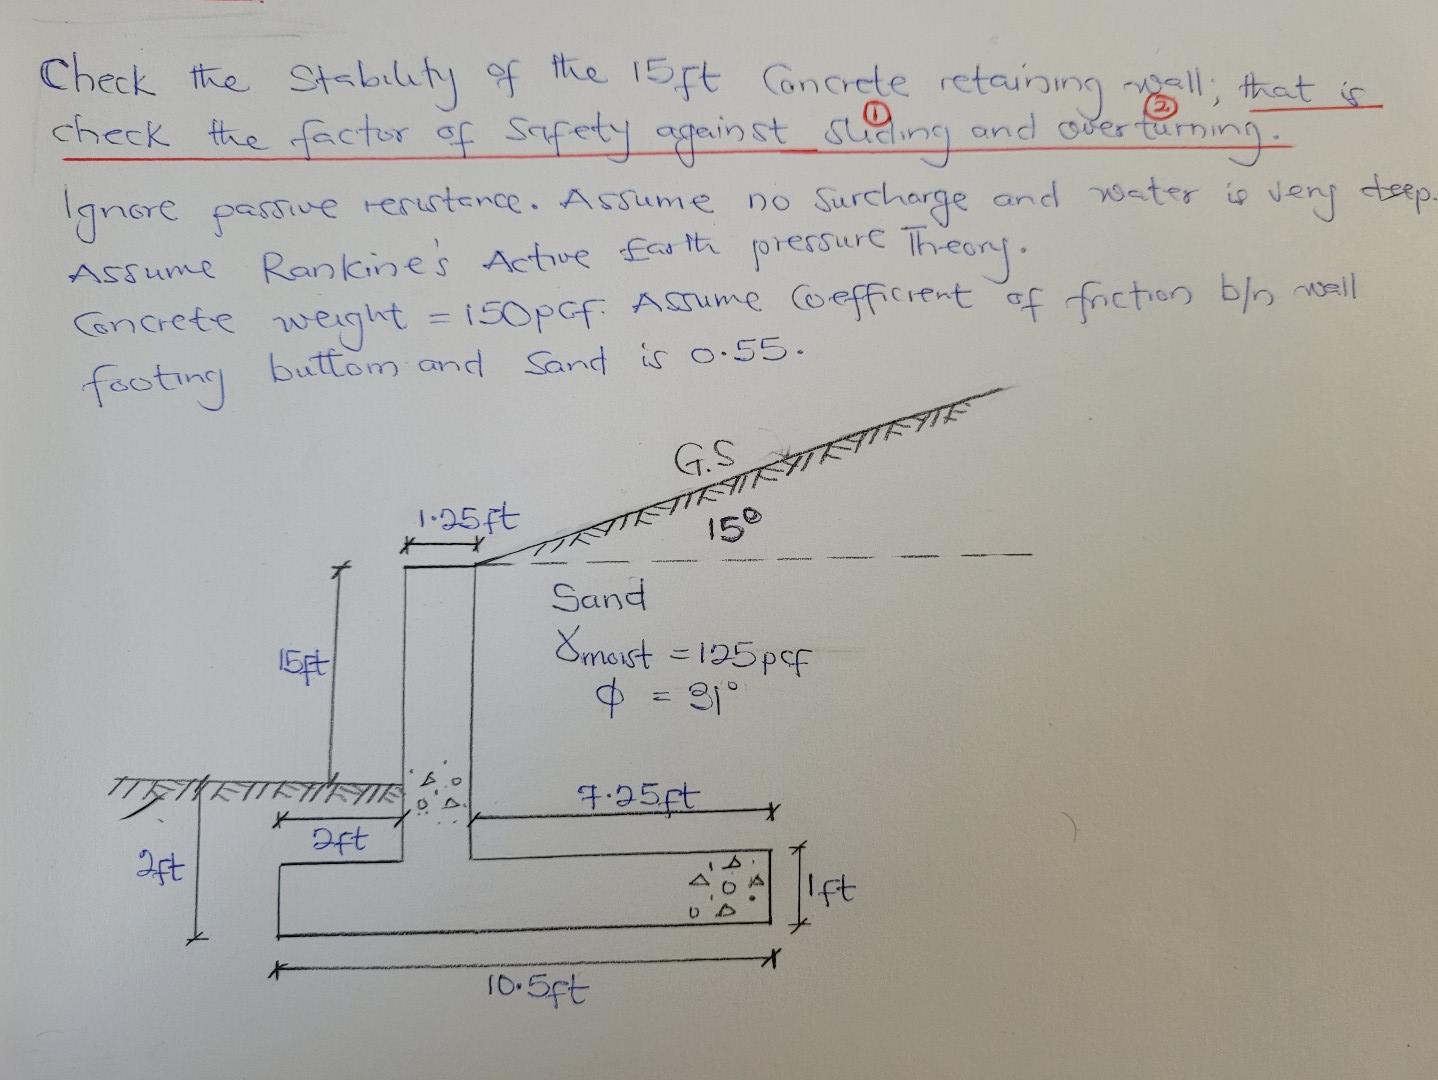 Check the Stability of the 15ft Concrete retaining wall; that is
① ②
check the factor of safety against sliding and overturning.
Ignore passive resistance. Assume no surcharge and water is very deep.
Assume Rankine's Active Earth pressure Theory.
Concrete weight = 150pcf. Assume Coefficient of friction b/n wall
footing buttom and Sand is 0.55.
G.S
1.25ft
15°
Sand
15ft
γmoist = 125pcf
ϕ = 31°
7.25ft
2ft
2ft
1ft
10.5ft